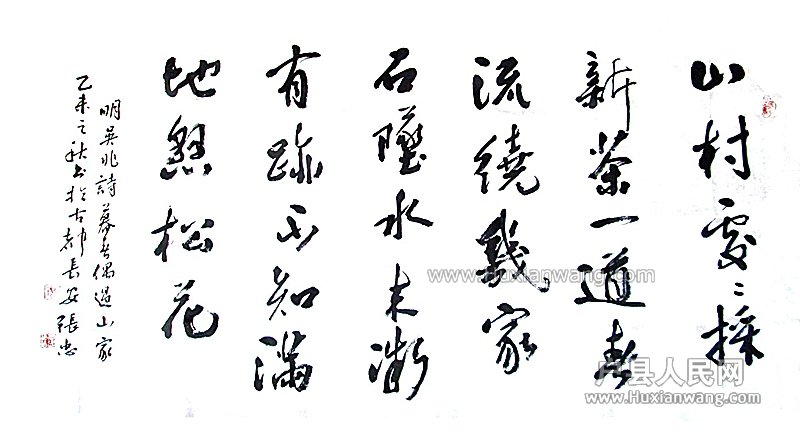 山村處〻採
新茶一道春
流繞幾家
石徑行來微
有跡不知滿
地松花
明吳兆詩暮春偶過山家
乙未之秋書於古都長安張忠
www.Huxianwang.com
户县人民网
www.Huxianwang.com